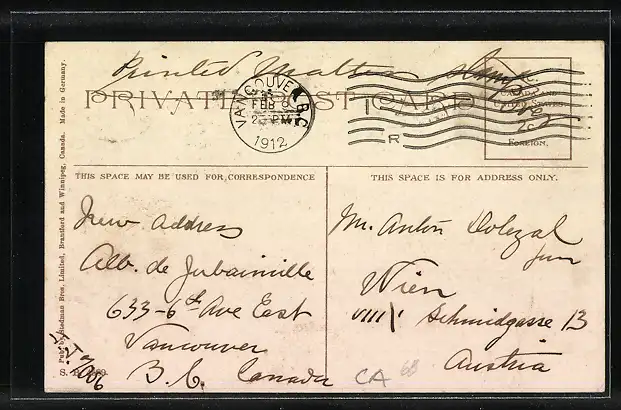 Printed Matter
PRIVATE POST CARD
VANCOUVER, B.C.
FEB 9
2 PM
1912
R
FOREIGN,
2c
THIS SPACE MAY BE USED FOR CORRESPONDENCE
THIS SPACE IS FOR ADDRESS ONLY.
New address
Alb. de Jubainville
633-6th Ave East
Vancouver
B.C. Canada
Mr. Anton Dolezal
jun
Wien
VIII/1 Schmidgasse 13
Austria
CA 68
Pub. by Stedman Bros., Limited, Brantford and Winnipeg, Canada. Made in Germany.